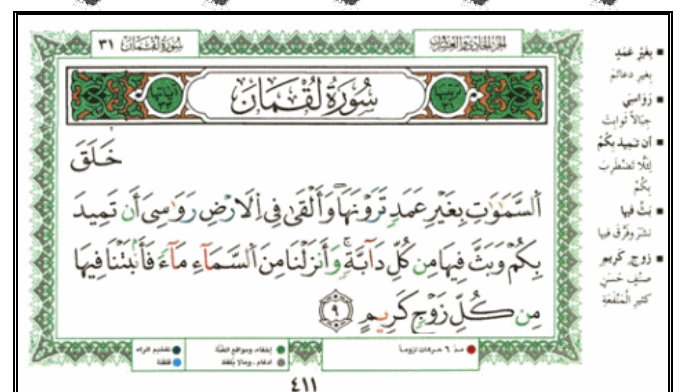 سُورَةُ لُقْمَان ٣١
الجزء الحادي والعشرون
سُورَةُ لُقْمَانَ
خَلَقَ
اَ۬لسَّمَٰوَٰتِ بِغَيْرِ عَمَدٖ تَرَوْنَهَا وَأَلْقَىٰ فِے اِ۬لَارْضِ رَوَٰسِيَ أَن تَمِيدَ
بِكُمْ وَبَثَّ فِيهَا مِن كُلِّ دَآبَّةٖ وَأَنزَلْنَا مِنَ اَ۬لسَّمَآءِ مَآءٗ فَأَنۢبَتْنَا فِيهَا
مِن كُلِّ زَوْجٖ كَرِيمٍ ٩
بِغَيْرِ عَمَدٍ
بغير دعائم
رَوَاسِيَ
جِبَالًا ثَوابِتَ
أن تَمِيدَ بِكُمْ
لِئَلَّا تَضْطَرِبَ
بِكُمْ
بَثَّ فيها
نَشَرَ وفَرَّقَ فيها
زوج كَريم
صنف حَسَنٍ
كثير الْمَنْفَعَةِ
مدّ ٦ حركات لزوماً
إخفاء، ومواقع الغُنَّة
ادغام، وما لا يُلفَظ
تفخيم الراء
قلقلة
٤١١